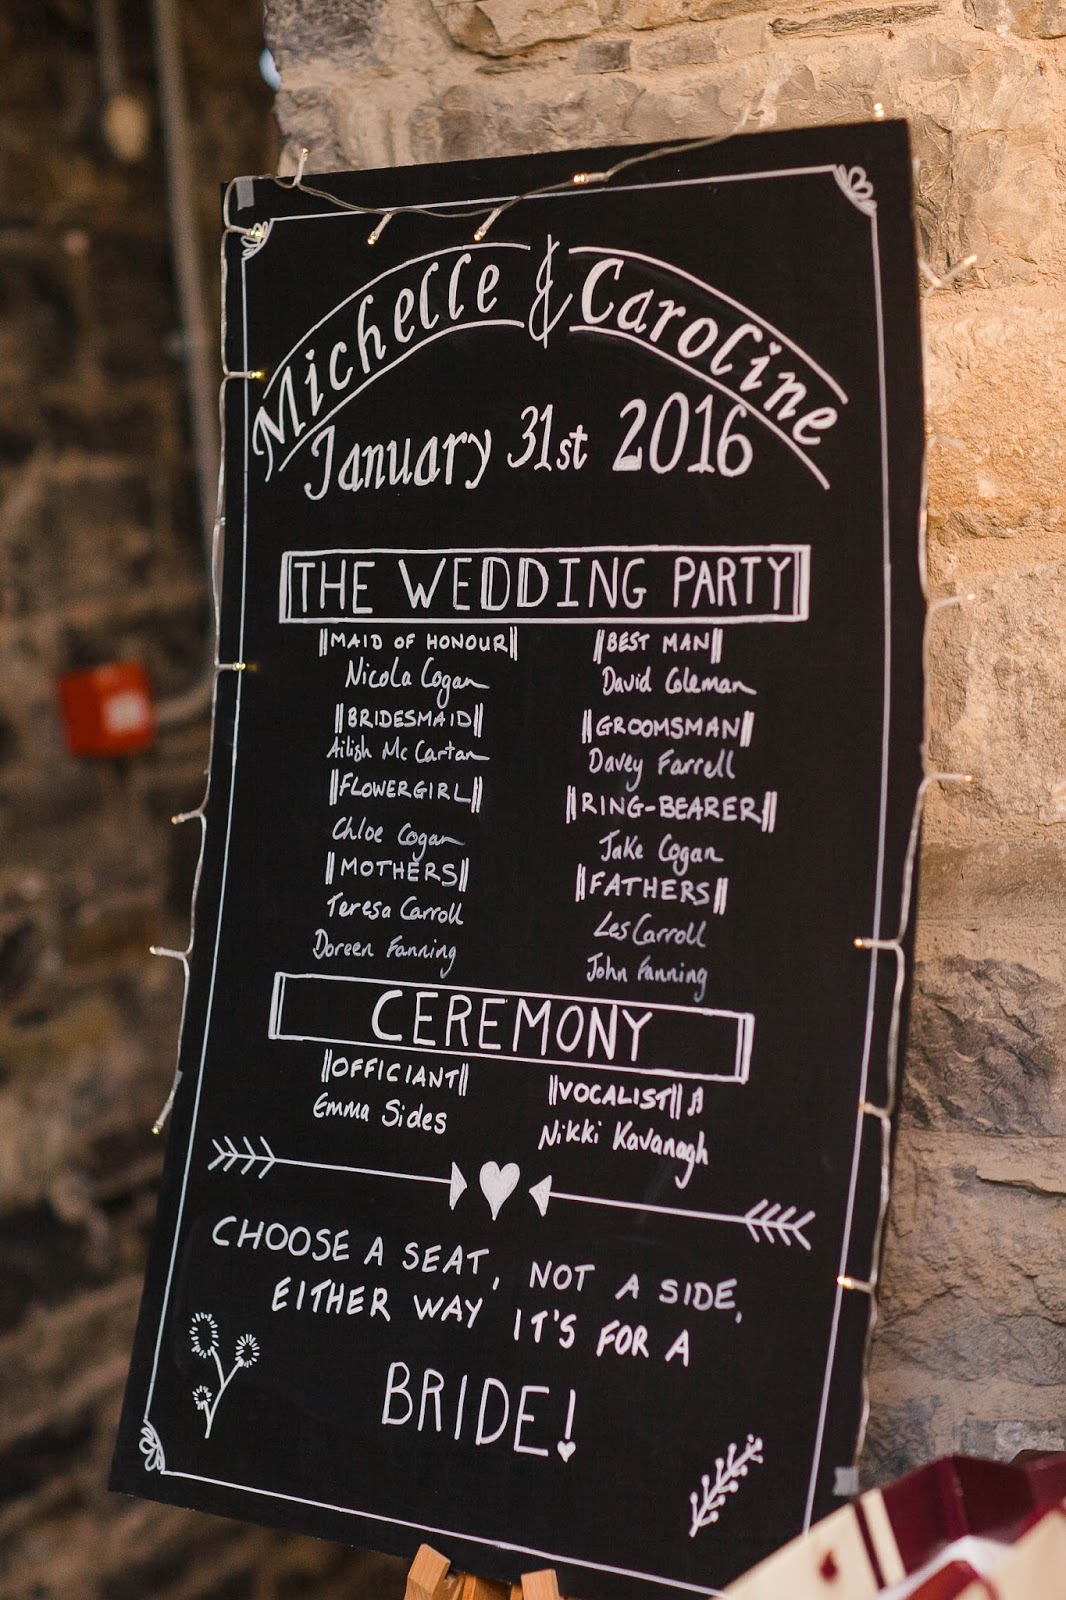 Michelle & Caroline
January 31st 2016
THE WEDDING PARTY
MAID OF HONOUR
Nicola Cogan
BRIDESMAID
Ailish Mc Cartan
FLOWERGIRL
Chloe Cogan
MOTHERS
Teresa Carroll
Doreen Fanning
BEST MAN
David Coleman
GROOMSMAN
Davey Farrell
RING-BEARER
Jake Cogan
FATHERS
Les Carroll
John Fanning
CEREMONY
OFFICIANT
Emma Sides
VOCALIST
Nikki Kavanagh
CHOOSE A SEAT, NOT A SIDE,
EITHER WAY IT'S FOR A
BRIDE!